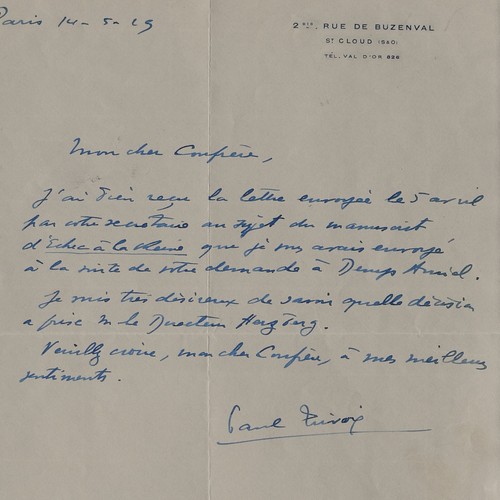 Paris 14-5-29
2 BIS, RUE DE BUZENVAL
ST CLOUD (S&O)
TÉL. VAL D'OR 828
Mon cher Confrère,
J'ai bien reçu la lettre envoyée le 5 avril
par votre secrétaire au sujet du manuscrit
d'Echec à la Reine que je vous avais envoyé
à la suite de votre demande à Denys Amiel.
Je suis très désireux de savoir quelle décision
a prise M. le Directeur Herzberg.
Veuillez croire, mon cher Confrère, à mes meilleurs
sentiments.
Paul